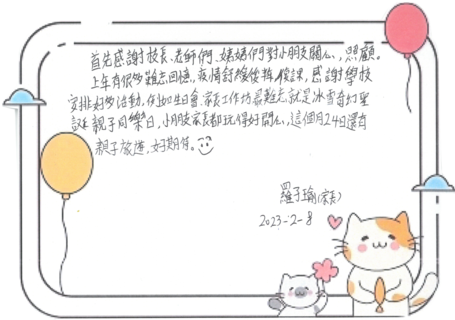 首先感謝校長、老師們、嬸嬸們對小朋友關心,照顧。
上年有很多難忘回憶,疫情舒緩後復課,感謝學校
安排好多活動,例如生日會、家長工作坊最難忘就是冰雪奇幻聖
誕親子同樂日,小朋友家長都玩得好開心,這個月24日還有
親子旅遊,好期待。
羅子瑜(家長)
2023-2-8